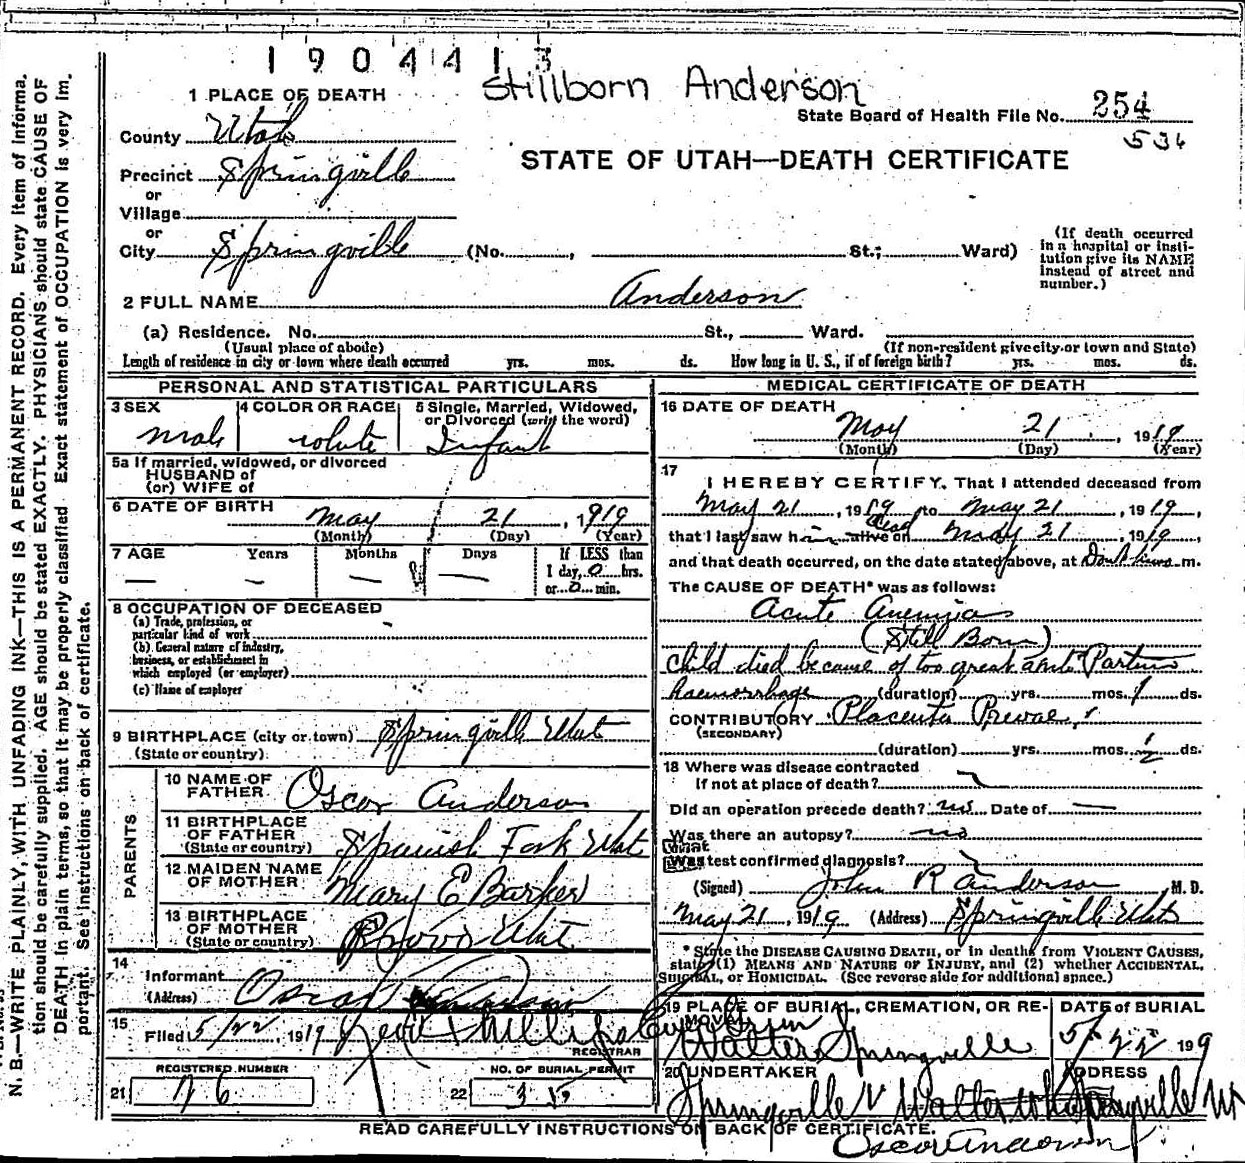 1904413
Stillborn Anderson
1 PLACE OF DEATH
State Board of Health File No. 254
536
County Utah
STATE OF UTAH—DEATH CERTIFICATE
Precinct Springville
or
Village
or
City Springville (No. , St.; Ward)
(If death occurred in a hospital or insti-
tution give its NAME
instead of street and
number.)
2 FULL NAME Anderson
(a) Residence. No. St., Ward.
(Usual place of abode) (If non-resident give city or town and State)
Length of residence in city or town where death occurred yrs. mos. ds. How long in U. S., if of foreign birth? yrs. mos. ds.
PERSONAL AND STATISTICAL PARTICULARS
3 SEX 4 COLOR OR RACE 5 Single, Married, Widowed,
or Divorced (write the word)
male white Infant
5a If married, widowed, or divorced
HUSBAND of
(or) WIFE of
6 DATE OF BIRTH
May 21, 1919
(Month) (Day) (Year)
7 AGE Years Months Days If LESS than
1 day, 0 hrs.
or 0 min.
8 OCCUPATION OF DECEASED
(a) Trade, profession, or
particular kind of work
(b) General nature of industry,
business, or establishment in
which employed (or employer)
(c) Name of employer
9 BIRTHPLACE (city or town) Springville Utah
(State or country)
PARENTS
10 NAME OF
FATHER Oscar Anderson
11 BIRTHPLACE
OF FATHER
(State or country) Spanish Fork Utah
12 MAIDEN NAME
OF MOTHER Mary E Barker
13 BIRTHPLACE
OF MOTHER
(State or country) Provo Utah
14
Informant Oscar Anderson
(Address)
15
Filed 5/22 1919
REGISTRAR
REGISTERED NUMBER NO. OF BURIAL PERMIT
21 26 22
MEDICAL CERTIFICATE OF DEATH
16 DATE OF DEATH
May 21, 1919
(Month) (Day) (Year)
17
I HEREBY CERTIFY, That I attended deceased from
May 21, 1919 to May 21, 1919,
that I last saw him alive on dead May 21, 1919,
and that death occurred, on the date stated above, at m.
The CAUSE OF DEATH* was as follows:
Acute Anemia
(Still Born)
Child died because of too great Partum
haemorrhage (duration) yrs. mos. 1 ds.
CONTRIBUTORY Placenta Previa
(SECONDARY)
(duration) yrs. mos. 1/2 ds.
18 Where was disease contracted
If not at place of death?
Did an operation precede death? no Date of
Was there an autopsy? no
What
Was test confirmed diagnosis?
(Signed) John R Anderson M. D.
May 21, 1919 (Address) Springville Utah
* State the DISEASE CAUSING DEATH, or in deaths from VIOLENT CAUSES,
state (1) MEANS AND NATURE OF INJURY, and (2) whether ACCIDENTAL,
SUICIDAL, or HOMICIDAL. (See reverse side for additional space.)
19 PLACE OF BURIAL, CREMATION, OR RE-
MOVAL DATE of BURIAL
Evergreen
Springville 5/22 1919
20 UNDERTAKER ADDRESS
Springville Walter Springville Ut
READ CAREFULLY INSTRUCTIONS ON BACK OF CERTIFICATE.
Oscar Anderson
N. B.—WRITE PLAINLY, WITH UNFADING INK—THIS IS A PERMANENT RECORD. Every item of informa-
tion should be carefully supplied. AGE should be stated EXACTLY. PHYSICIANS should state CAUSE OF
DEATH in plain terms, so that it may be properly classified. Exact statement of OCCUPATION is very im-
portant. See instructions on back of certificate.